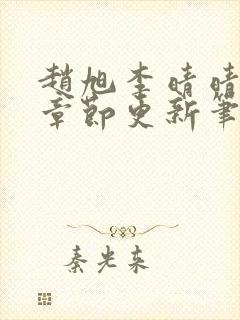 趙旭李晴晴
章節更新筆
秦光東